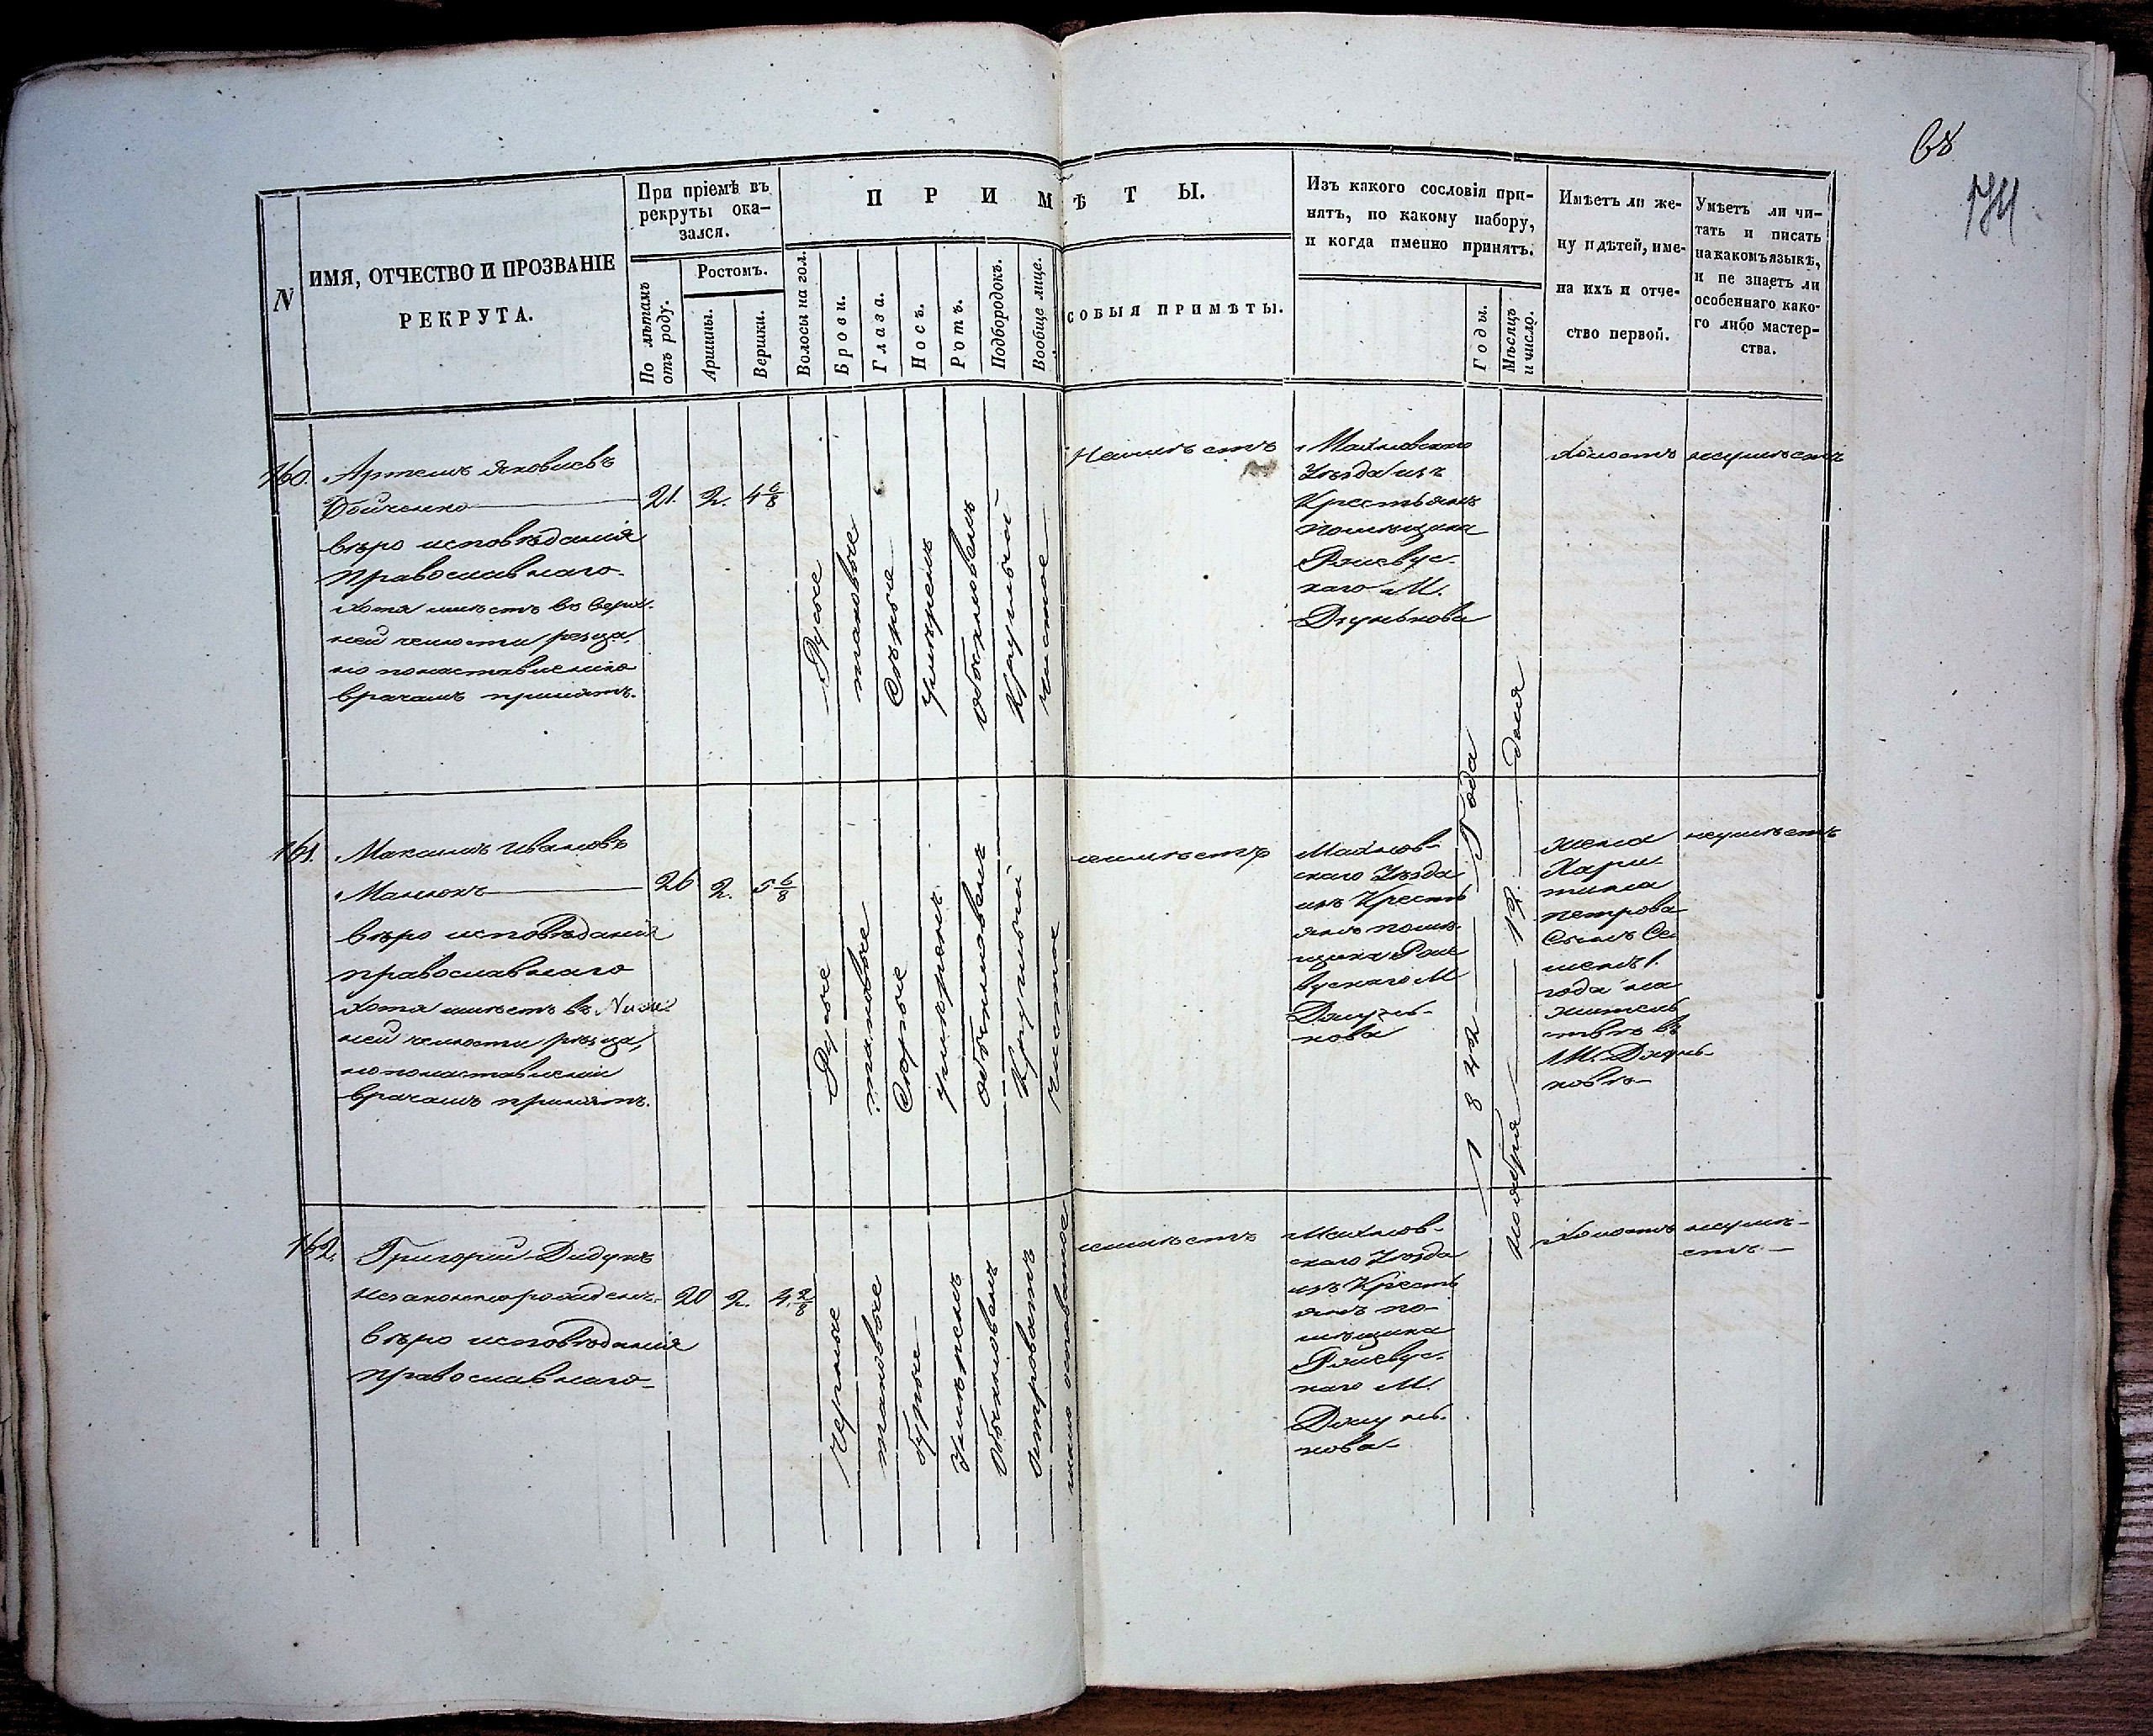 68
174
N
ИМЯ, ОТЧЕСТВО И ПРОЗВАНІЕ
РЕКРУТА.
При пріемѣ въ
рекруты ока-
зался.
По лѣтамъ
отъ роду.
Ростомъ.
Аршины.
Вершки.
П Р И М Ѣ Т Ы.
Волосы на гол.
Брови.
Глаза.
Носъ.
Ротъ.
Подбородокъ.
Вообще лице.
СОБЫЯ ПРИМѢТЫ.
Изъ какого сословія при-
нятъ, по какому набору,
и когда именно принятъ.
Годы.
Мѣсяцъ
и число.
Имѣетъ ли же-
ну и дѣтей, име-
на ихъ и отче-
ство первой.
Умѣетъ ли чи-
тать и писать
на какомъ языкѣ,
и не знаетъ ли
особеннаго како-
го либо мастер-
ства.
160.
Артемъ Яковлевъ
Бойченко
вѣро исповѣданія
православнаго
хотя имѣетъ въ верх-
ней челюсти резца,
но по наставленію
врачамъ принятъ.
21. 2. 4 6/8
Русые
таковые
Сѣрые
умѣренъ
обыкновенъ
Круглый
чистое
Неимѣетъ
Уѣзда изъ
Крестьянъ
помѣщика
Ржевус-
каго М.
Холостъ
неумѣетъ
161.
Максимъ Ивановъ
Манюкъ
вѣро исповѣданія
православнаго
хотя имѣетъ въ Ниж-
ней челюсти рѣзца,
но по наставленіи
врачамъ принятъ.
26 2. 5 6/8
Русые
таковые
Сѣрые
умѣренъ
обыкновенъ
Круглый
чистое
неимѣетъ
скаго Уѣзда
изъ Кресть
янъ помѣ-
щика Рже
вускаго М
Джунь-
кова
1842 Года
ноября 12. дня
жена
Хари
тина
петрова
Сынъ Се
менъ 1.
года на
житель
твѣ въ
М. Джунь-
ковѣ
неумѣетъ
162.
Григорій Дидукъ
незаконно рожденъ.
вѣро исповѣданія
православнаго
20 2. 4 2/8
Черные
таковые
бурые
Умѣренъ
Обыкновенъ
неимѣетъ
скаго Уѣзда
изъ Кресть
янъ по-
мѣщика
Ржевус-
каго М.
Джунь-
кова
Холостъ
неумѣ-
етъ